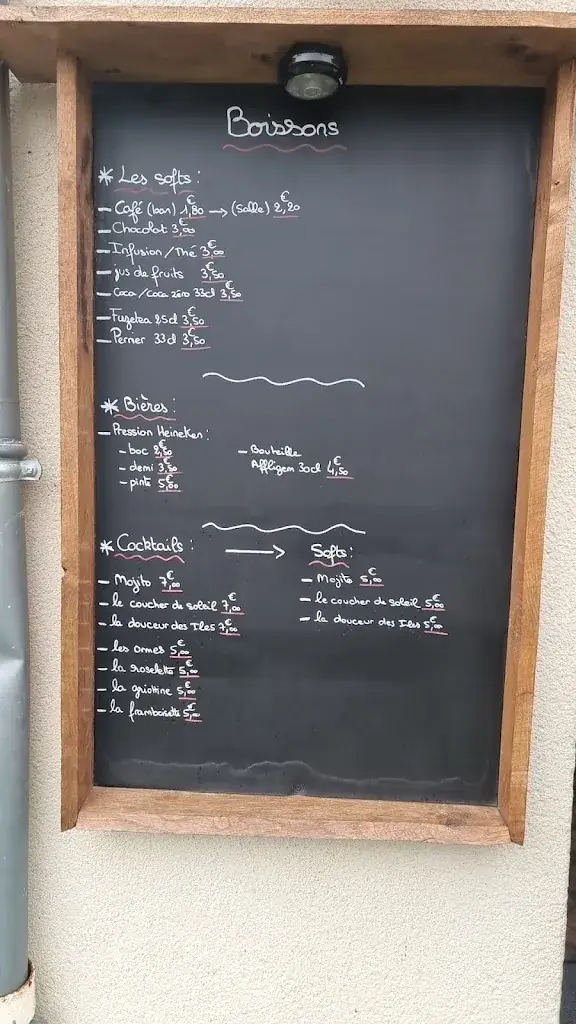 Boissons
* Les softs :
- Café (bar) 1,80€ → (Salle) 2,20€
- Chocolat 3,00€
- Infusion/Thé 3,00€
- jus de fruits 3,50€
- Coca/Coca zéro 33cl 3,50€
- Fuzetea 25cl 3,50€
- Perrier 33cl 3,50€
* Bières :
- Pression Heineken :
- boc 2,50€
- demi 3,50€
- pinte 5,00€
- Bouteille
Affligem 30cl 4,50€
* Cocktails : → Softs :
- Mojito 7,00€
- le coucher de soleil 7,00€
- la douceur des Iles 7,00€
- les ormes 5,00€
- la roselette 5,00€
- la griottine 5,00€
- la framboisette 5,00€
- Mojito 5,00€
- le coucher de soleil 5,00€
- la douceur des Iles 5,00€